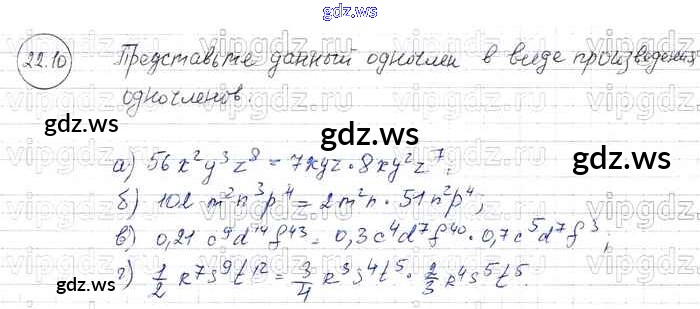 gdz.ws
22.10 Представьте данный одночлен в виде произведения
одночленов.
gdz.ws
gdz.ws
а) 56x²y³z⁸ = 7xyz · 8xy²z⁷;
б) 102 m²n³p⁴ = 2m²n · 51n²p⁴;
gdz.ws
gdz.ws
в) 0,21 c⁹d¹⁴f⁴³ = 0,3c⁴d⁷f⁴⁰ · 0,7c⁵d⁷f³;
г) 1/2 k⁷s⁹t¹² = 3/4 k³s⁴t⁵ · 2/3 k⁴s⁵t⁵.
gdz.ws
gdz.ws